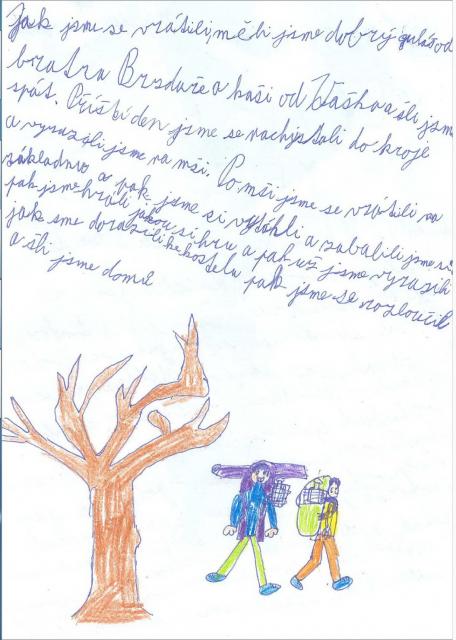 Jak jsme se vrátili, měli jsme dobrý guláš od
bratra Brzdaře a kaši od Vaška a šli jsme
spát. Příští den jsme se nachystali do kroje
a vyrazili jsme na mši. Po mši jsme se vrátili na
základnu a pak jsme si vytáhli a zabalili jsme si
pak jsme hráli jakou si hru a pak už jsme vyrazili
jak sme dorazili ke kostelu pak jsme se rozloučili
a šli jsme domů